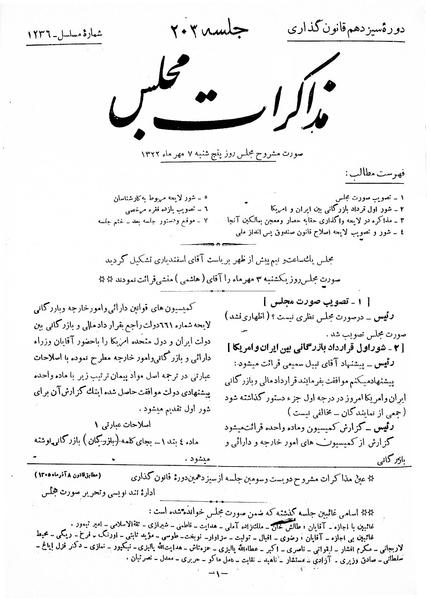 دورهٔ سیزدهم قانون گذاری
جلسه ۲۰۳
شمارهٔ مسلسل - ۱۲۳۶
مذاکرات مجلس
صورت مشروح مجلس روز پنج شنبه ۷ مهر ماه ۱۳۲۲
فهرست مطالب:
۱ - تصویب صورت مجلس
۲ - شور اول قرارداد بازرگانی بین ایران و امریکا
۳ - مذاکره در لایحه واگذاری حقابه حصار ومعجن بمالکین آنجا
۴ - شور و تصویب لایحه اصلاح قانون صندوق پس انداز ملی
۵ - شور لایحه مربوط به کارشناسان
۶ - تصویب یازده فقره مرخصی
۷ - موقع ودستور جلسه بعد - ختم جلسه
مجلس یکساعت و نیم پیش از ظهر بریاست آقای اسفندیاری تشکیل گردید
صورت مجلس روز یکشنبه ۳ مهر ماه را آقای (هاشمی) منشی قرائت نمودند
[ ۱ - تصویب صورت مجلس ]
رئیس - درصورت مجلس نظری نیست؟ (اظهاری نشد)
صورت مجلس تصویب شد.
[ ۲ - شور اول قرارداد بازرگانی بین ایران و امریکا ]
رئیس - پیشنهاد آقای نبیل سمیعی قرائت میشود:
پیشنهاد میکنم موافقت بفرمایند قرارداد مالی و بازرگانی
ایران وامریکا امروز در درجه اول جزء دستور گذاشته شود
(جمعی از نمایندگان - مخالفی نیست)
رئیس - گزارش کمیسیون وماده واحده قرائت میشود
گزارش از کمیسیون های امور خارجه و دارائی و
بازرگانی
کمیسیون های قوانین دارائی وامور خارجه وبازرگانی
لایحه شماره ۶۶۱ دولت راجع بقرارداد مالی و بازرگانی بین
دولت ایران و دول متحده امریکا را باحضور آقایان وزراء
دارائی و بازرگانی وامور خارجه مطرح نموده با اصلاحات
عبارتی در ترجمه اصل مواد پیمان ترتیب زیر با ماده واحده
پیشنهادی دولت موافقت حاصل شد اینک گزارش آن برای
شور اول تقدیم میشود.
اصلاحات عبارتی ۱
ماده ٤ بند ۱ - بجای کلمه (بازرگان) بازرگانی نوشته
میشود.
عین مذاکرات مشروح دویست و سومین جلسه از سیزدهمین دورهٔ قانون گذاری
(مطابق قانون ۸ آذر ماه ۱۳۰۵)
اداره تند نویسی و تحریر صورت مجلس
اسامی غائبین جلسه گذشته که ضمن صورت مجلس خوانده شده است:
غائبین با اجازه - آقایان: طالش خان - ملک زاده آملی - هدایت - فاطمی - شیرازی - ثقةالاسلامی - امیر تیمور.
غائبین بی اجازه - آقایان: رضوی - اقبال - تولیت - مزاوار - نوبخت - طوسی - مؤید ثابتی - اورنگ - فرخ - ریگی - محیط
لاریجانی - مکرم افشار - ایقوانی - ناصری - اکبر - عطاءالله پالیزی - عزت‌اش - هدایت الله پالیزی - نیکپور - نمازی - دکتر قزل ایاغ -
سلطانی - صادق وزیری - آزادی - مستشار - ناهید - نقابت - عامل ماکو - حریری - معدل - نصرتیان.
-۱-